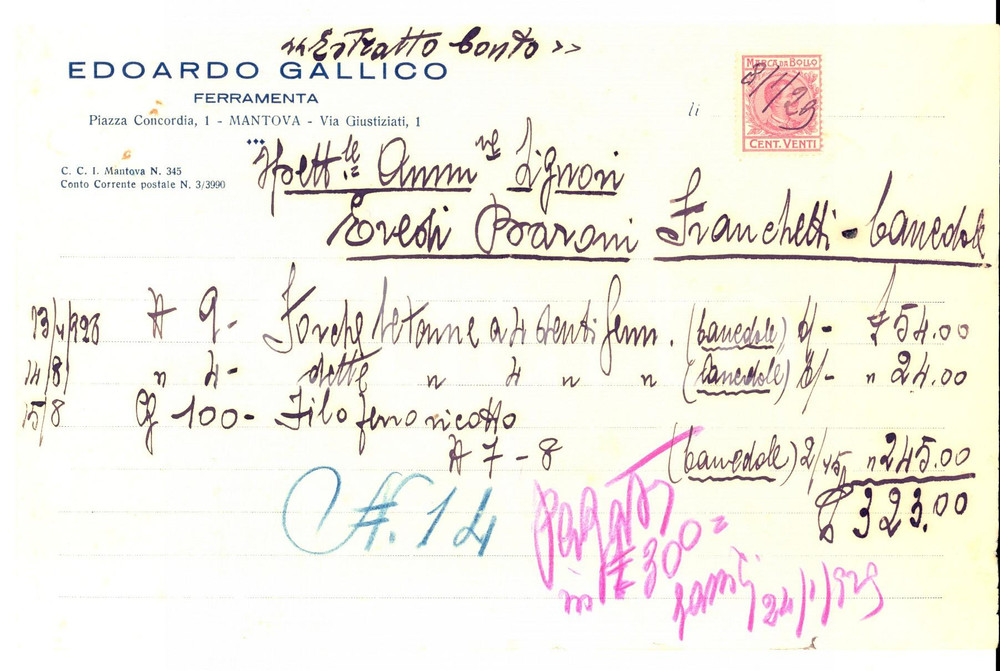 «Estratto Conto»
EDOARDO GALLICO
FERRAMENTA
Piazza Concordia, 1 - MANTOVA - Via Giustiziati, 1
li
MARCA DA BOLLO
8/1/29
CENT. VENTI
C. C. I. Mantova N. 345
Conto Corrente postale N. 3/3990
Spett.le Amm.ne Signori
Eredi Baroni Franchetti - Canedole
13/4/928 N 9 - Forche letame a 4 denti ferr. (Canedole) 6/- £ 54.00
14/8 " 4 - dette " 4 " " (Canedole) 6/- " 24.00
15/8 Cg 100 - Filo ferro ricotto
N 7 - 8 (Canedole) 2/45 " 245.00
£ 323.00
N. 14
Pagato
in £ 300=
24/1/929